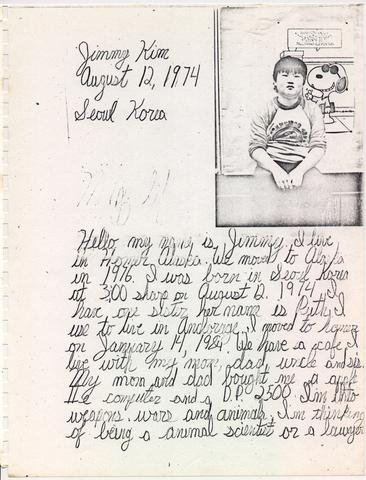 Jimmy Kim
August 12, 1974
Seoul Korea
Hello, my name is Jimmy. I live
in Homer Alaska. We moved to Alaska
in 1976. I was born in Seoul Korea
at 3:00 sharp on August 12, 1974. I
have one sister her name is Ruth. I
use to live in Anchorage. I moved to homer
on January 14, 1984. We have a cafe. I
live with my mom, dad, uncle and sis.
My mom and dad bought me a apple
IIe computer and a D.P. 2500. I'm into
weapons, wars and animals. I'm thinking
of being a animal scientist or a lawyer.